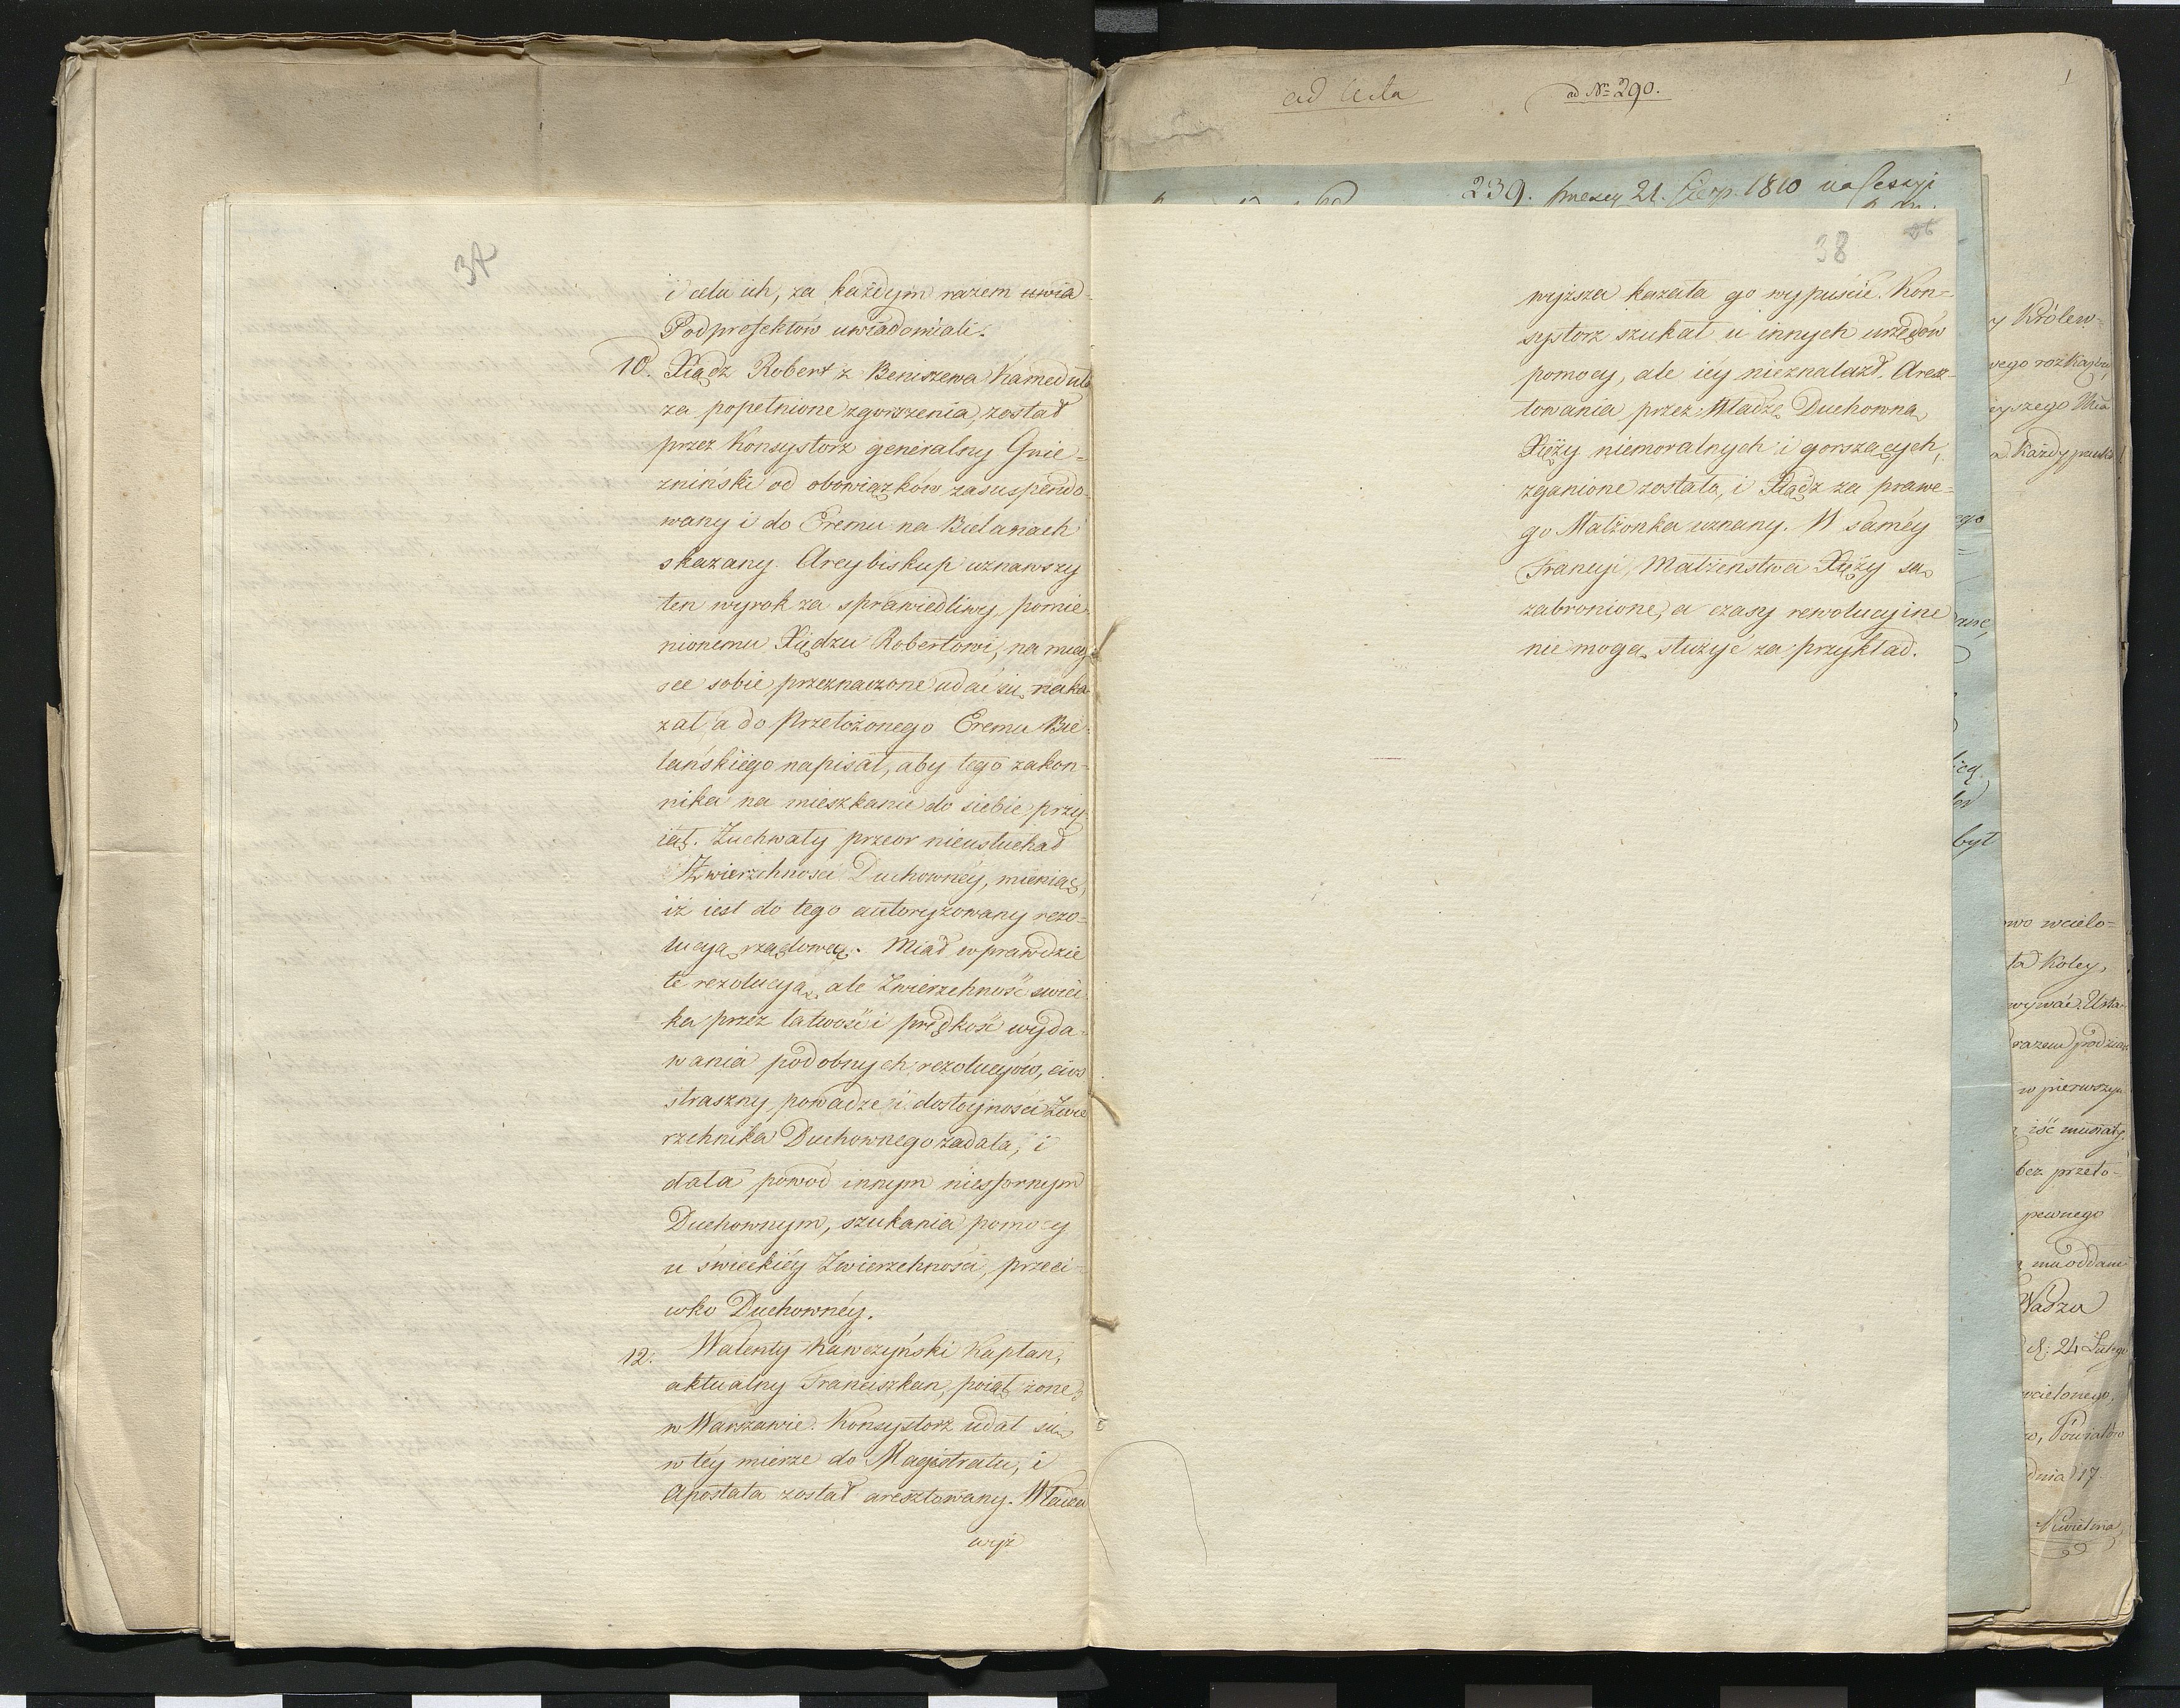 37
i celu ich, za każdym razem uwia-
Podprefektów uwiadomiali.
10. Xiądz Robert z Beniszewa Kameduła
za popełnione zgorszenia, został
przez Konsystorz generalny Gnie=
znińśki od obowiązków zasuspendo-
wany i do Eremu na Bielanach
skazany. Arcybiskup uznawszy
ten wyrok za sprawiedliwy, pomie-
nionemu Xiędzu Robertowi, na miey
sce sobie przeznaczone udać się naka-
zał, a do Przełożonego Eremu Bie-
lańskiego napisał, aby tego zakon-
nika na mieszkanie do siebie przy-
iął. Zuchwały przeor nieusłuchał
Zwierzchności Duchownéy, mieniąc,
iż iest do tego autoryzowany rezo=
lucyą rządową. Miał wprawdzie
tę rezolucyą, ale Zwierzchność świec
ka przez łatwość i prędkość wyda-
wania podobnych rezolucyów, cios
straszny powadze i dostoyności Zwie
rzchnika Duchownego zadała, i
dała powód innym niesfornym
Duchownym, szukania pomocy
u świeckiéy Zwierzchności, przeci-
wko Duchownéy.
12. Walenty Kawczyński Kapłan,
aktualny Franciszkan, poiął żonę
w Warszawie. Konsystorz udał się
w téy mierze do Magistratu, i
Apostata został aresztowany. Władza
wyż
ad Acta
ad Nr 290.
1
239. 21. Sierp. 1810 na Sessyi
38
26
wyższa kazała go wypuścić. Kon-
systorz szukał u innych urzędów
pomocy, ale iéy nieznalazł. Aresz-
towania przez Władzę Duchowną
Xięży niemoralnych i gorszących,
zganione zostało, i Xiądz za prawe-
go Małżonka uznany. W saméy
Francyi, Małżenstwa Xięży są
zabronione, a czasy rewolucyine
nie mogą służyć za przykład.
y Królew=
wego rozkazu,
yższego
Każdy
ego
byt
wo wcielo=
Koley,
razem
w pierwszym
iść musiały.
bez przeło-
pewnego
mu oddani
d: 24 Lutego
wcielonego,
Powiatów
dnia 17
Kwietnia,